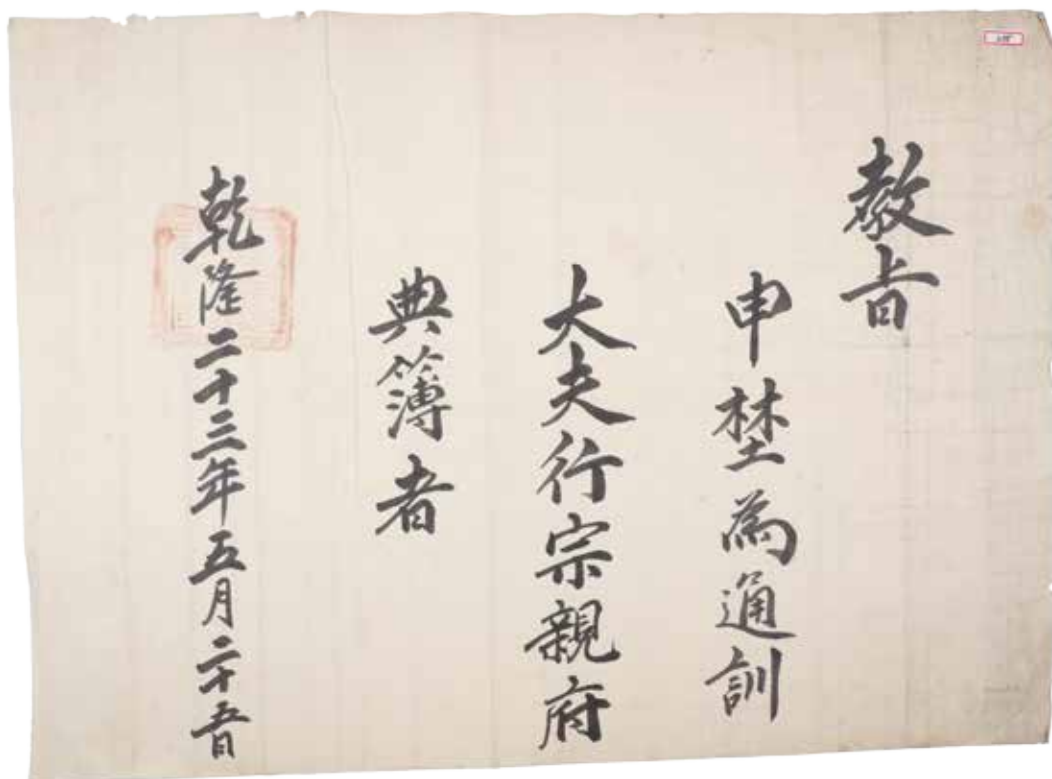 教旨
申埜為通訓
大夫行宗親府
典簿者
乾隆二十三年五月二十五日